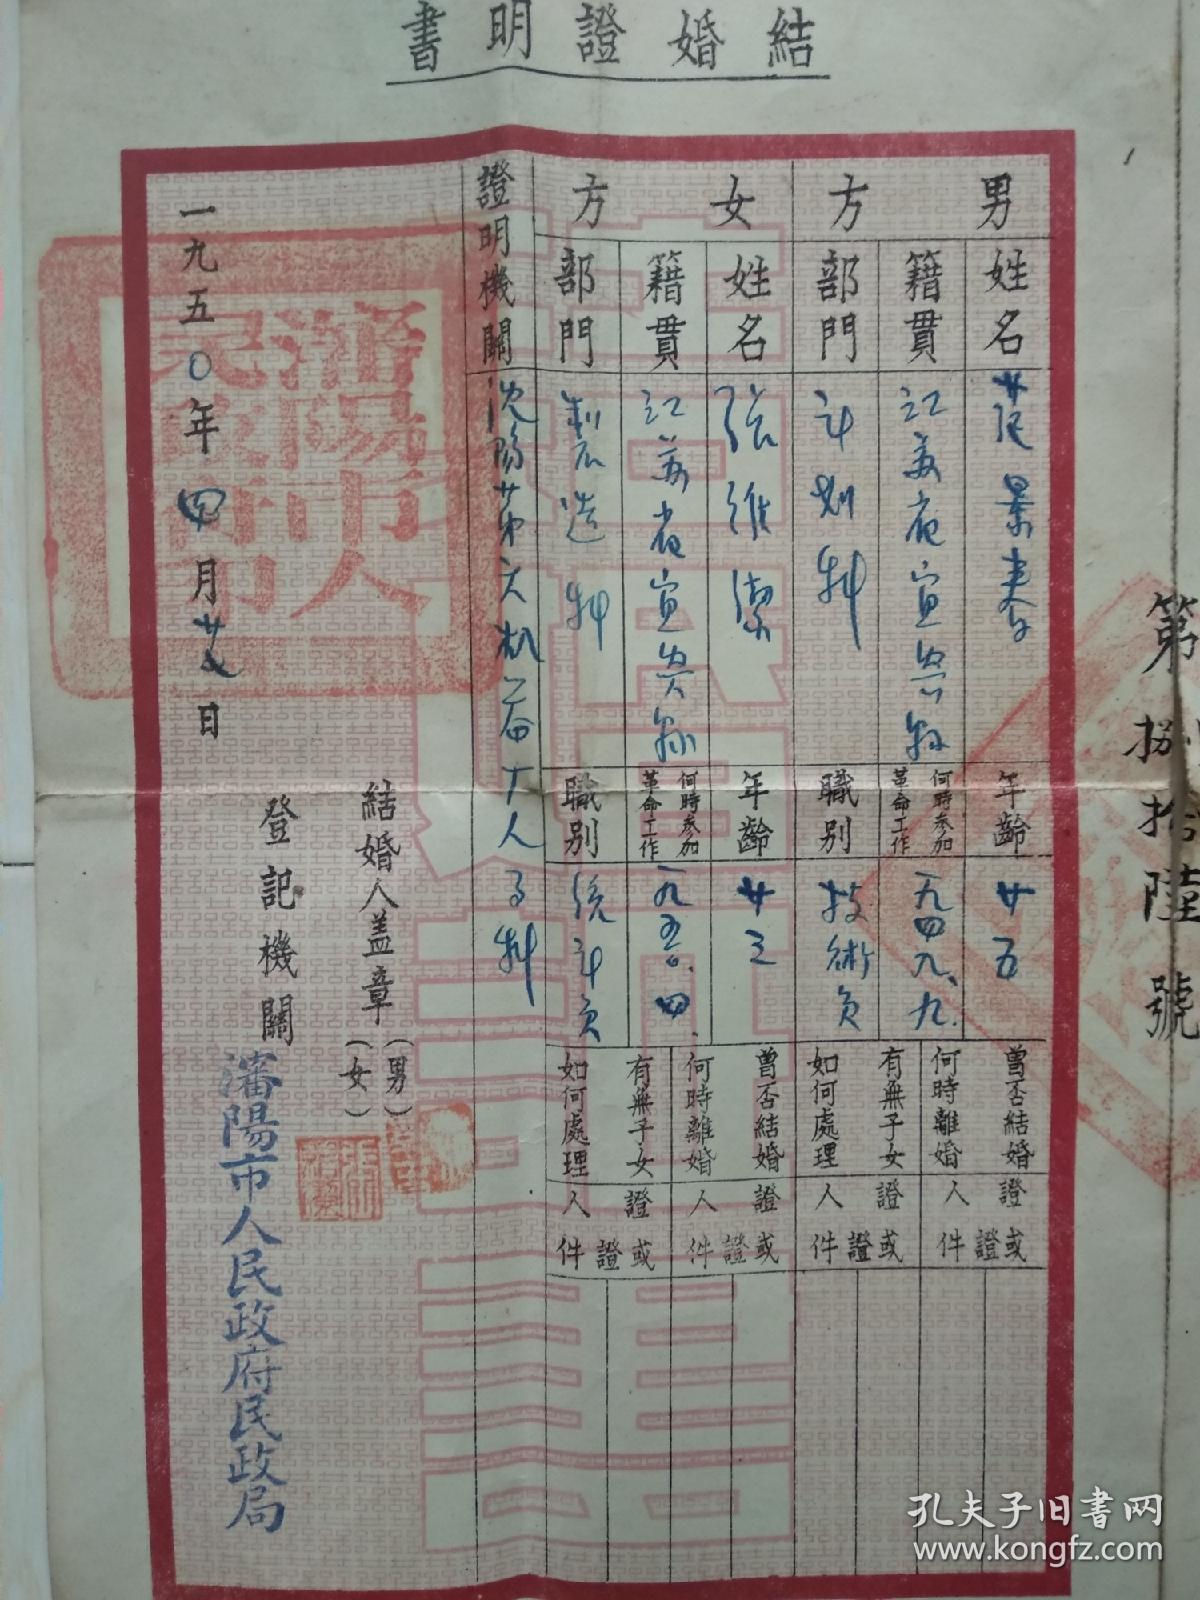 結婚證明書
男方
姓名
景春
年齡
廿五
籍貫
江蘇省宜興縣
何時參加
革命工作
一九四九、九、
部門
計劃科
職別
技術員
曾否結婚
何時離婚
證人
或證件
有無子女
如何處理
證人
或證件
女方
姓名
張維潔
年齡
廿三
籍貫
江蘇省宜興縣
何時參加
革命工作
一九五〇、四、
部門
製造科
職別
統計員
曾否結婚
何時離婚
證人
或證件
有無子女
如何處理
證人
或證件
證明機關
沈陽第六机器厂人事科
結婚人蓋章
(男)
(女)
登記機關
瀋陽市人民政府民政局
一九五〇年四月廿 日
第
捌拾陸號
瀋陽市人民政府
孔夫子旧书网
www.kongfz.com